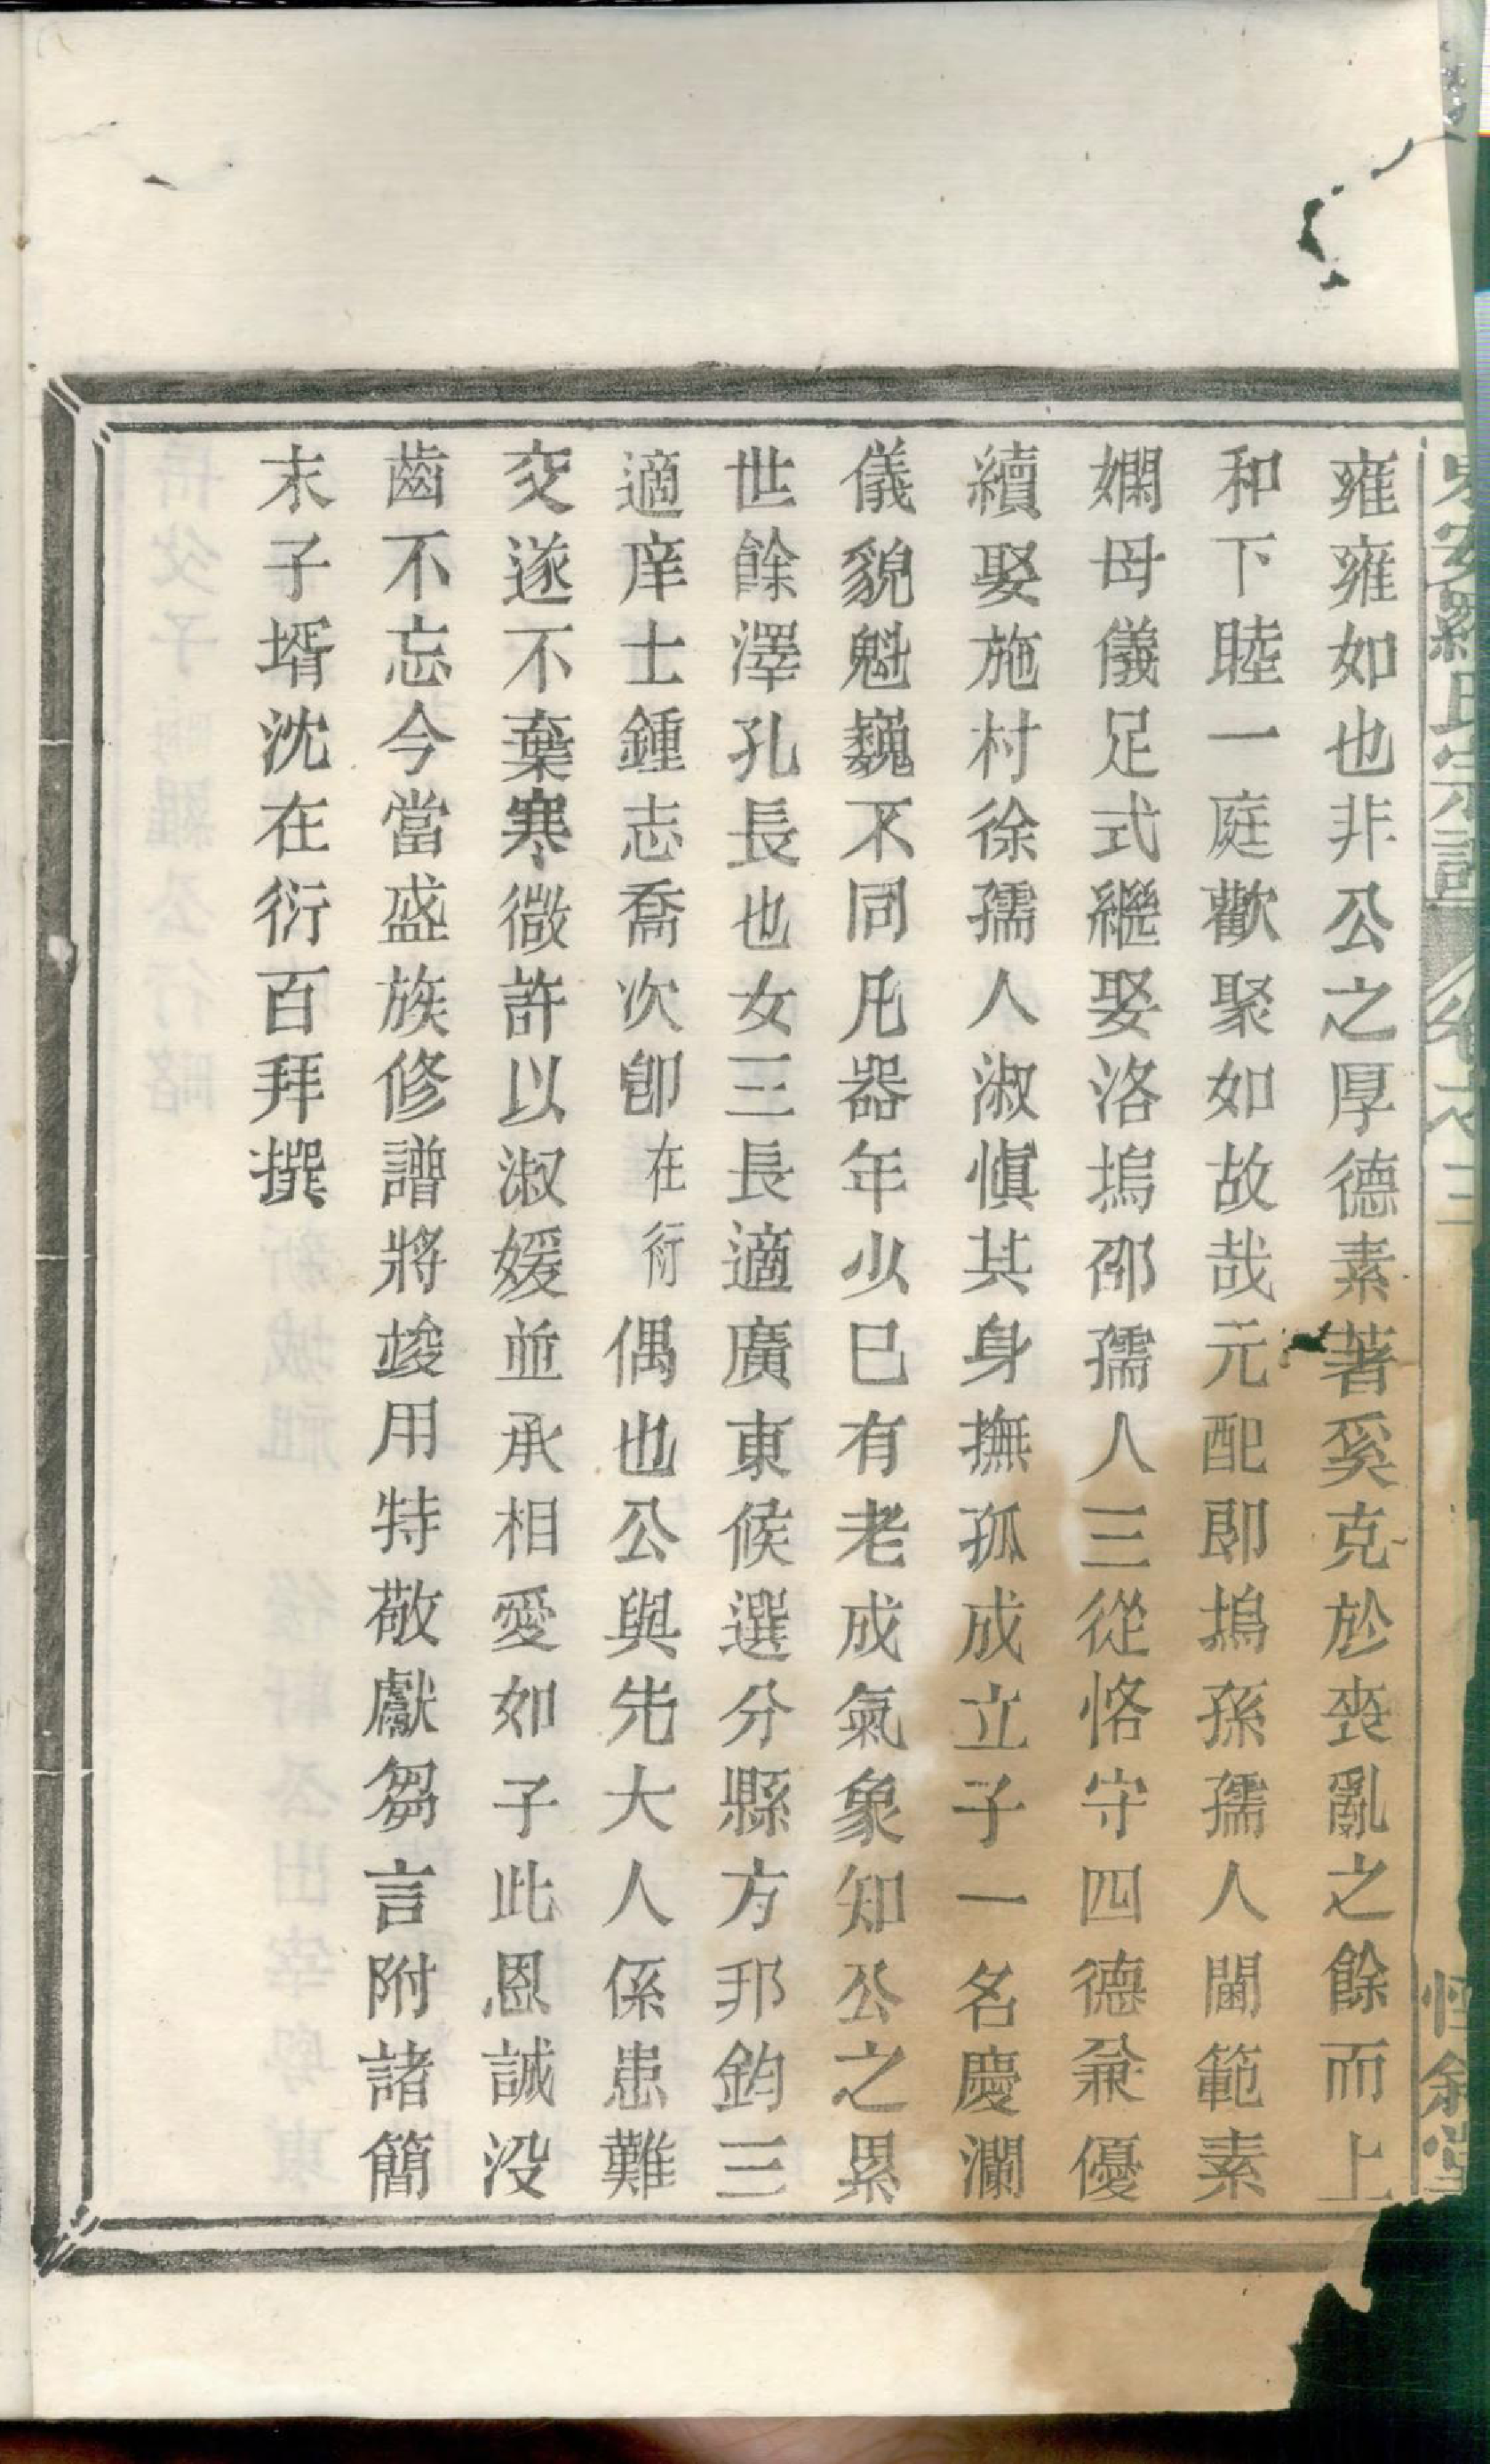 羅氏宗譜 卷之三
雍雍如也非公之厚德素著奚克於喪亂之餘而上
和下睦一庭歡聚如故哉元配郞塢孫孺人閫範素
嫻母儀足式繼娶洛塢邵孺人三從恪守四德兼優
續娶施村徐孺人淑慎其身撫孤成立子一名慶瀾
儀貌魁巍不同凡器年少巳有老成氣象知公之累
世餘澤孔長也女三長適廣東候選分縣方邦鈞三
適庠士鍾志喬次卽在衍偶也公與先大人係患難
交遂不棄寒微許以淑媛並承相愛如子此恩誠沒
齒不忘今當盛族修譜將竣用特敬獻芻言附諸簡
末子壻沈在衍百拜撰